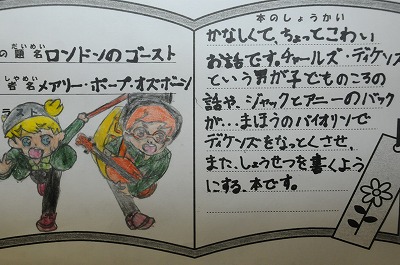 の題名 だいめい ロンドンのゴースト
者名 しゃめい メアリー・ポープ・オズボーン
本のしょうかい
かなしくて、ちょっとこわい
お話です。チャールズ・ディケンズ
という男が子どものころの
話や、ジャックとアニーのバック
が…まほうのバイオリンで
ディケンズをなっとくさせ、
また、しょうせつを書くよう
にする、本です。